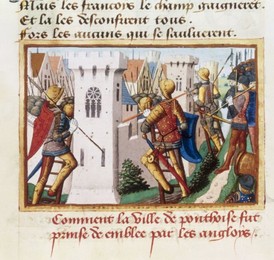 Mais les francois le champ gaignerẽt.
Et la les desconfirent tous.
Fors les aucuns qui se sauluerent.
Comment la Ville de ponthoise fut
prinse de emblee par les angloys.